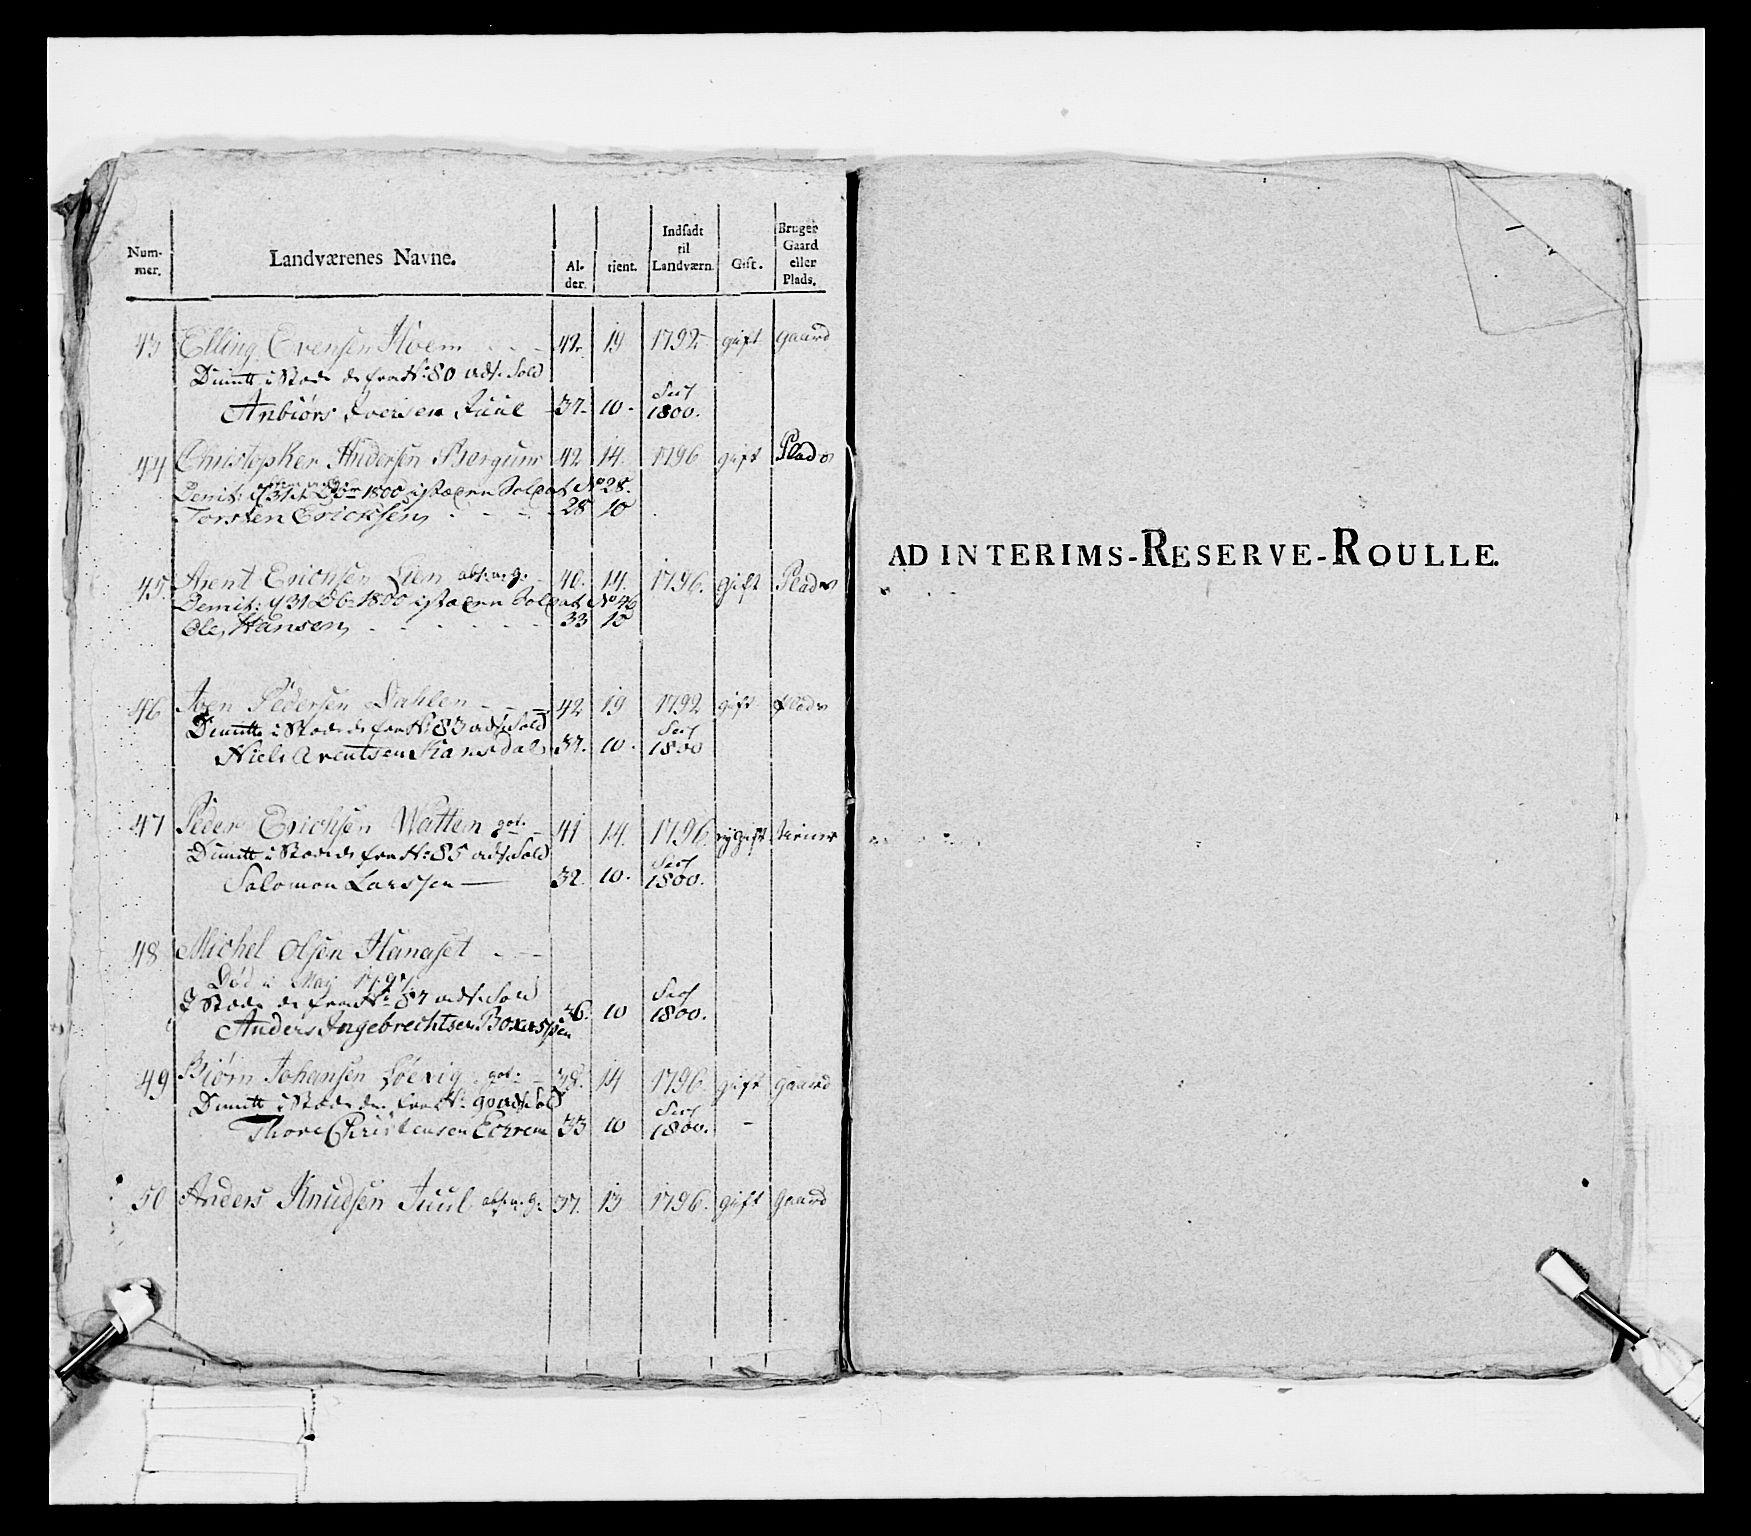 Num- mer. Landværenes Navne. Al- der. tient. Indsadt til Landværn. Gift. Bruger Gaard eller Plads.
43 Elling Evensen Hoem 42 19 1792 gift gaard
Dimitt i Stæde de fra N: 80 Sold
Anbiørs Iversen Juul 37 10 1800.
44 Christopher Andersen Bergum 42 14 1796 gift Plads
Demit: d 31 1800 i stæden Soldat No 28.
Torsten Ericksen 28 10
45. Arent Erichsen Lien 40. 14. 1796. gift Plads
Demit: d 31 1800 i stæden Soldat No 46
Ole Hansen 33 10
46 Pedersen Dahlen 42 19 1792 gift plads
Dimitt i Stæde de fra N: 83 Sold
Niels Arentsen Ramsdal 37. 10. 1800
47 Peder Erichsen Watten 41 14. 1796.
Dimitt i Stæde de fra N: 85 Sold
Salomon Larssen 32. 10. 1800.
48 Michel Olsen Hanaset
Død i May 1797.
I Stæde de fra N: 87 Sold
Anders Ingebrechtsen 36. 10 1800.
49 Biørn Johansen 38. 14 1796 gift gaard
Dimitt i Stæde de fra N: 90 Sold
Thore Christensen 33 10 1800. -
50 Anders Knudsen Juul 37. 13 1796. gift gaard
AD INTERIMS-RESERVE-ROULLE.